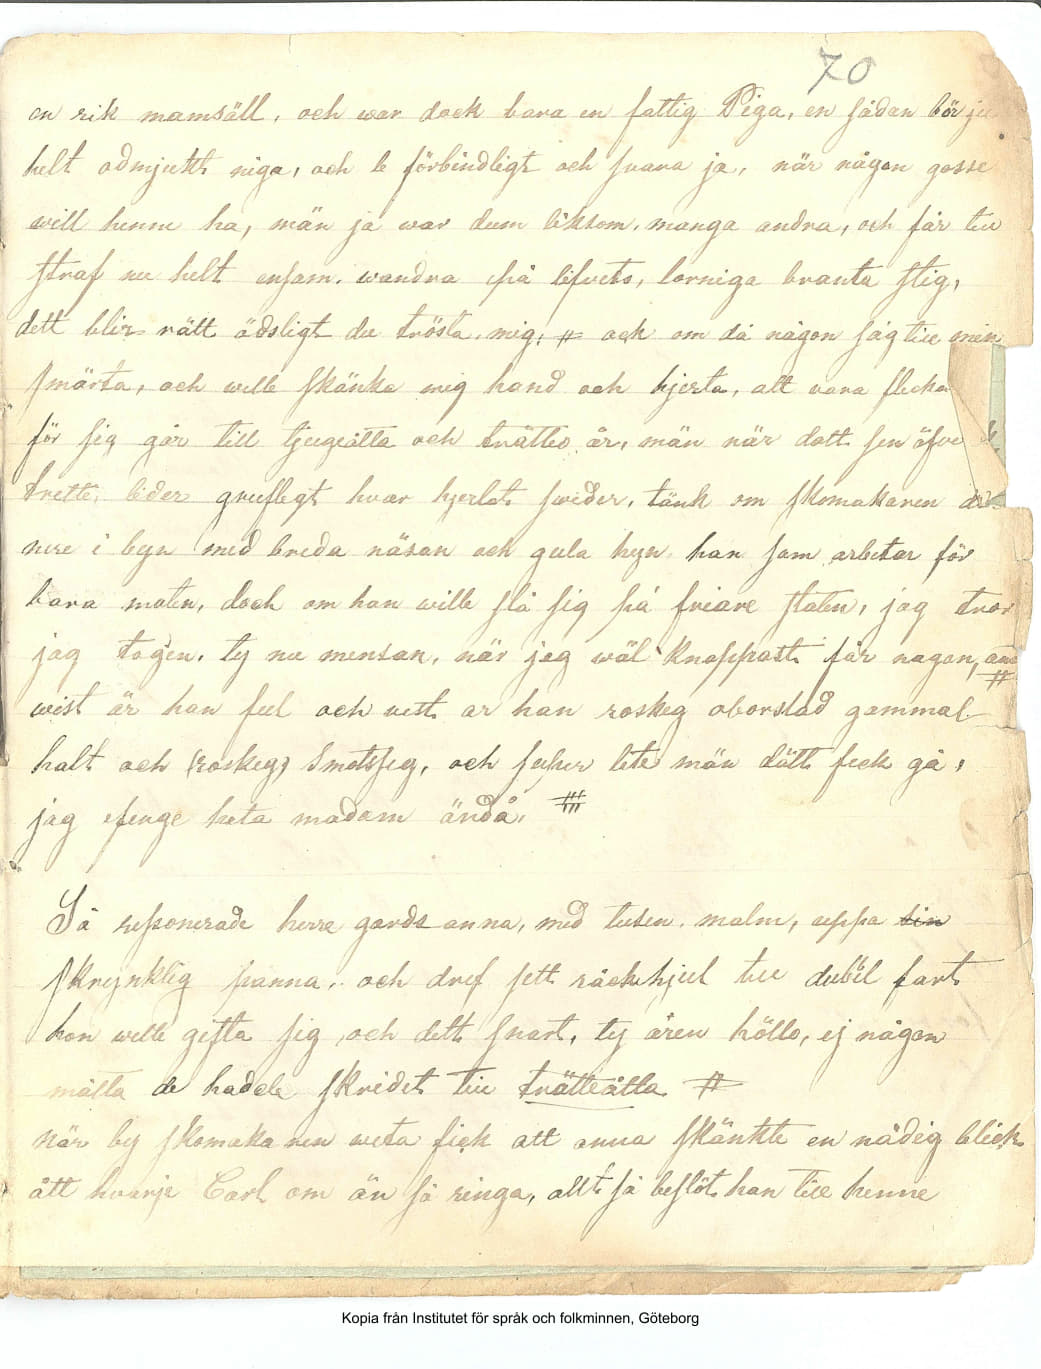 70
en rik mamsäll, och war dock bara en fattig Piga, en sådan bör ju
helt ödmjukt niga, och le förbindligt och svara ja, när någon gosse
will henne ha, män ja war dum liksom, manga andra, och får till
straf nu helt ensam. wandra på lifvets, torniga branta stig,
dett blir rätt ödsligt du trösta mig, # och om då någon såg till min
smärta, och wille skänka mig hand och hjerta, att vara flicka
för sig går till tjugeåtta och trättio år, män när dott sen öfve
trette, lider grufligt hvar hjertat swider, tänk om skomakaren där
nere i byn med breda näsan och gula hyn han som arbetar för
bara maten, doch om han wille slå sig på friare staten, jag tror
jag togen, ty nu mensan, när jag wäl knappast får nagon, ann
wist är han ful och vist ar han roskig oborstad gammal
halt och (roskig) Smotsfig, och super lite män dätt fick gå,
jag finge heta madam ändå. #
Så resonerade herre gards anna, med tusen, malm, uppa sin
skrynklig panna, och dref sett råckhjul till dubel fart
hon wille gifta sig och dett snart, ty åren höllo, ej någon
måtta de hade skridet till trätteåtta #
När by skomakaren weta fick att anna skänkte en nådig blick
ått hvarje Carl om än så ringa, allt så beslöt han till henne
Kopia från Institutet för språk och folkminnen, Göteborg